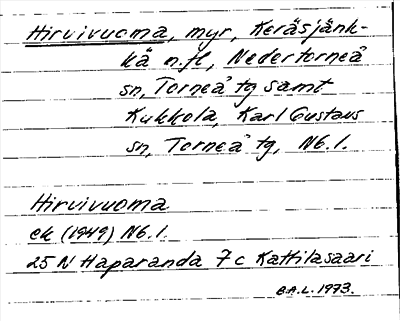 Hirvivuoma, myr, Keräsjänk-
kä n.fl, Nedertorneå
sn, Torneå tg samt
Kukkola, Karl Gustavs
sn, Torneå tg, Nb.l.
Hirvivuoma
ek (1949) Nb.l.
25 N Haparanda 7c Kattilasaari
B.A.L. 1973.